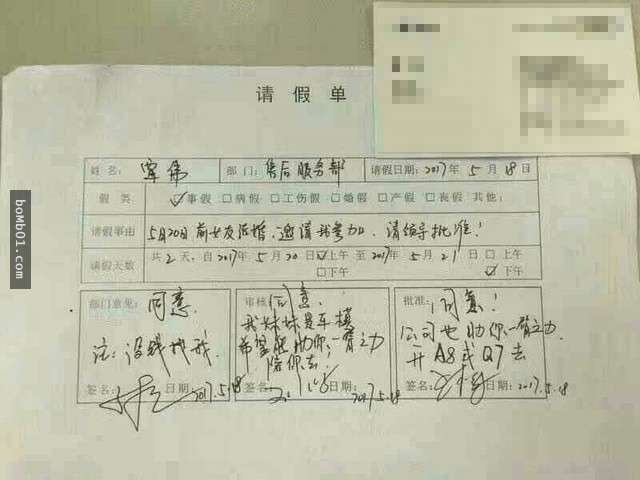 请假单
姓名: 军伟 部门: 售后服务部 请假日期: 2017年5月18日
假类 ☑事假 □病假 □工伤假 □婚假 □产假 □丧假 其他:
请假事由 5月20日前女友结婚,邀请我参加,请领导批准!
请假天数 共2天,自2017年5月20日☑上午 □下午 至2017年5月21日□上午 ☑下午
部门意见: 同意.
注:没钱找我
签名: 日期: 2017.5.18
审核: 同意.
我妹妹是车模
希望能助你一臂之力
陪你去
签名: 日期: 2017.5.18
批准: 同意!
公司也助你一臂之力.
开A8或Q7去
签名: 日期: 2017.5.18
bomb01.com